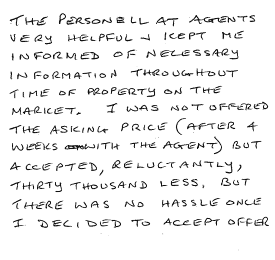 THE PERSONELL AT AGENTS
VERY HELPFUL & KEPT ME
INFORMED OF NECESSARY
INFORMATION THROUGHOUT
TIME OF PROPERTY ON THE
MARKET. I WAS NOT OFFERED
THE ASKING PRICE (AFTER 4
WEEKS WITH THE AGENT) BUT
ACCEPTED, RELUCTANTLY,
THIRTY THOUSAND LESS. BUT
THERE WAS NO HASSLE ONCE
I DECIDED TO ACCEPT OFFER